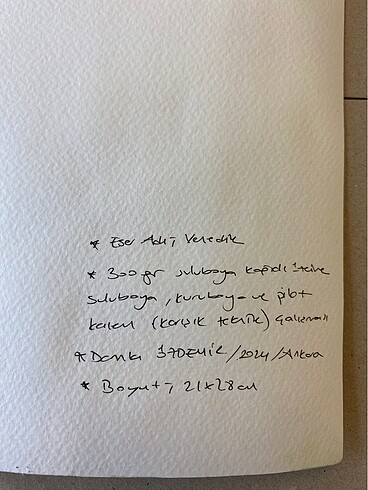 * Eser Adı; Venedik
* 300 gr suluboya kağıdı üzerine
suluboya, kuruboya ve pilot
kalem (karışık teknik) çalışması
* / 2024 / Ankara
* Boyut; 21x28 cm